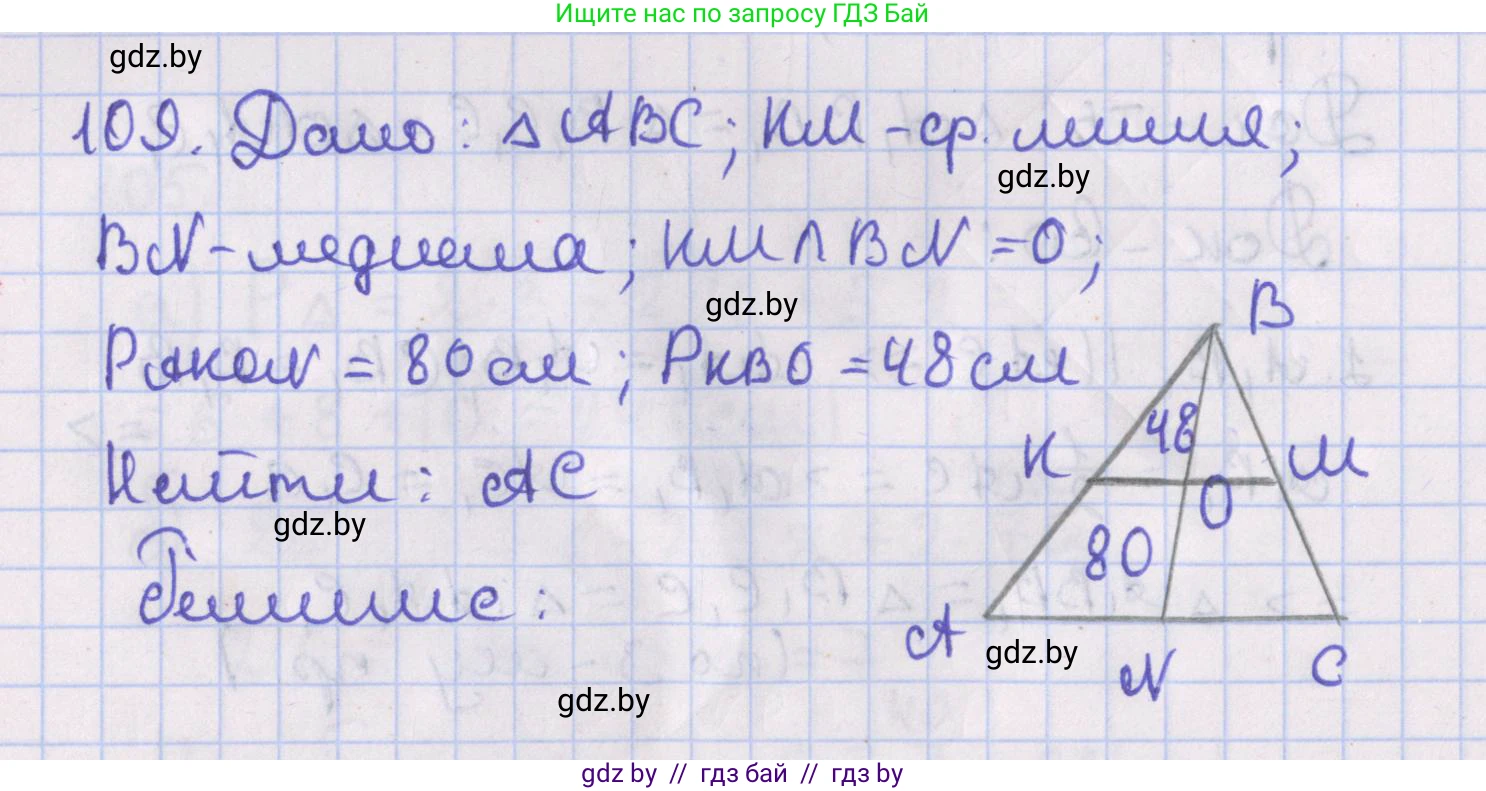 Ищите нас по запросу ГДЗ Бай
gdz.by
109. Дано: △ABC; KM - ср. линия;
gdz.by
BN - медиана; KM ∩ BN = O;
gdz.by
PAKON = 80 см; PKBO = 48 см
B
48
K
M
O
Найти: AC
gdz.by
80
Решение:
A
gdz.by
N
C
gdz.by
gdz by // гдз бай // гдз by